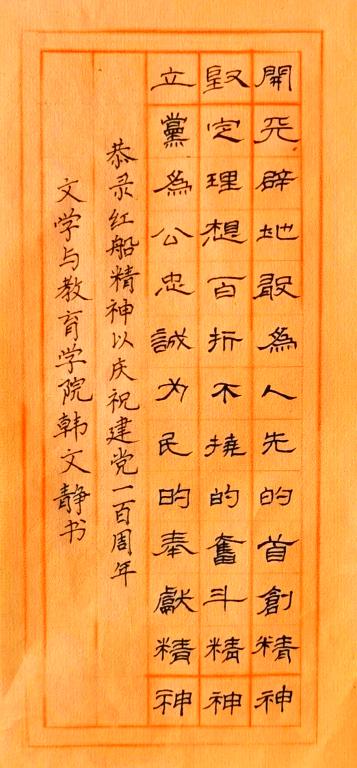 開天辟地敢為人先的首創精神
堅定理想百折不撓的奮斗精神
立黨為公忠誠为民的奉獻精神
恭录红船精神以庆祝建党一百周年
文学与教育学院韩文静书